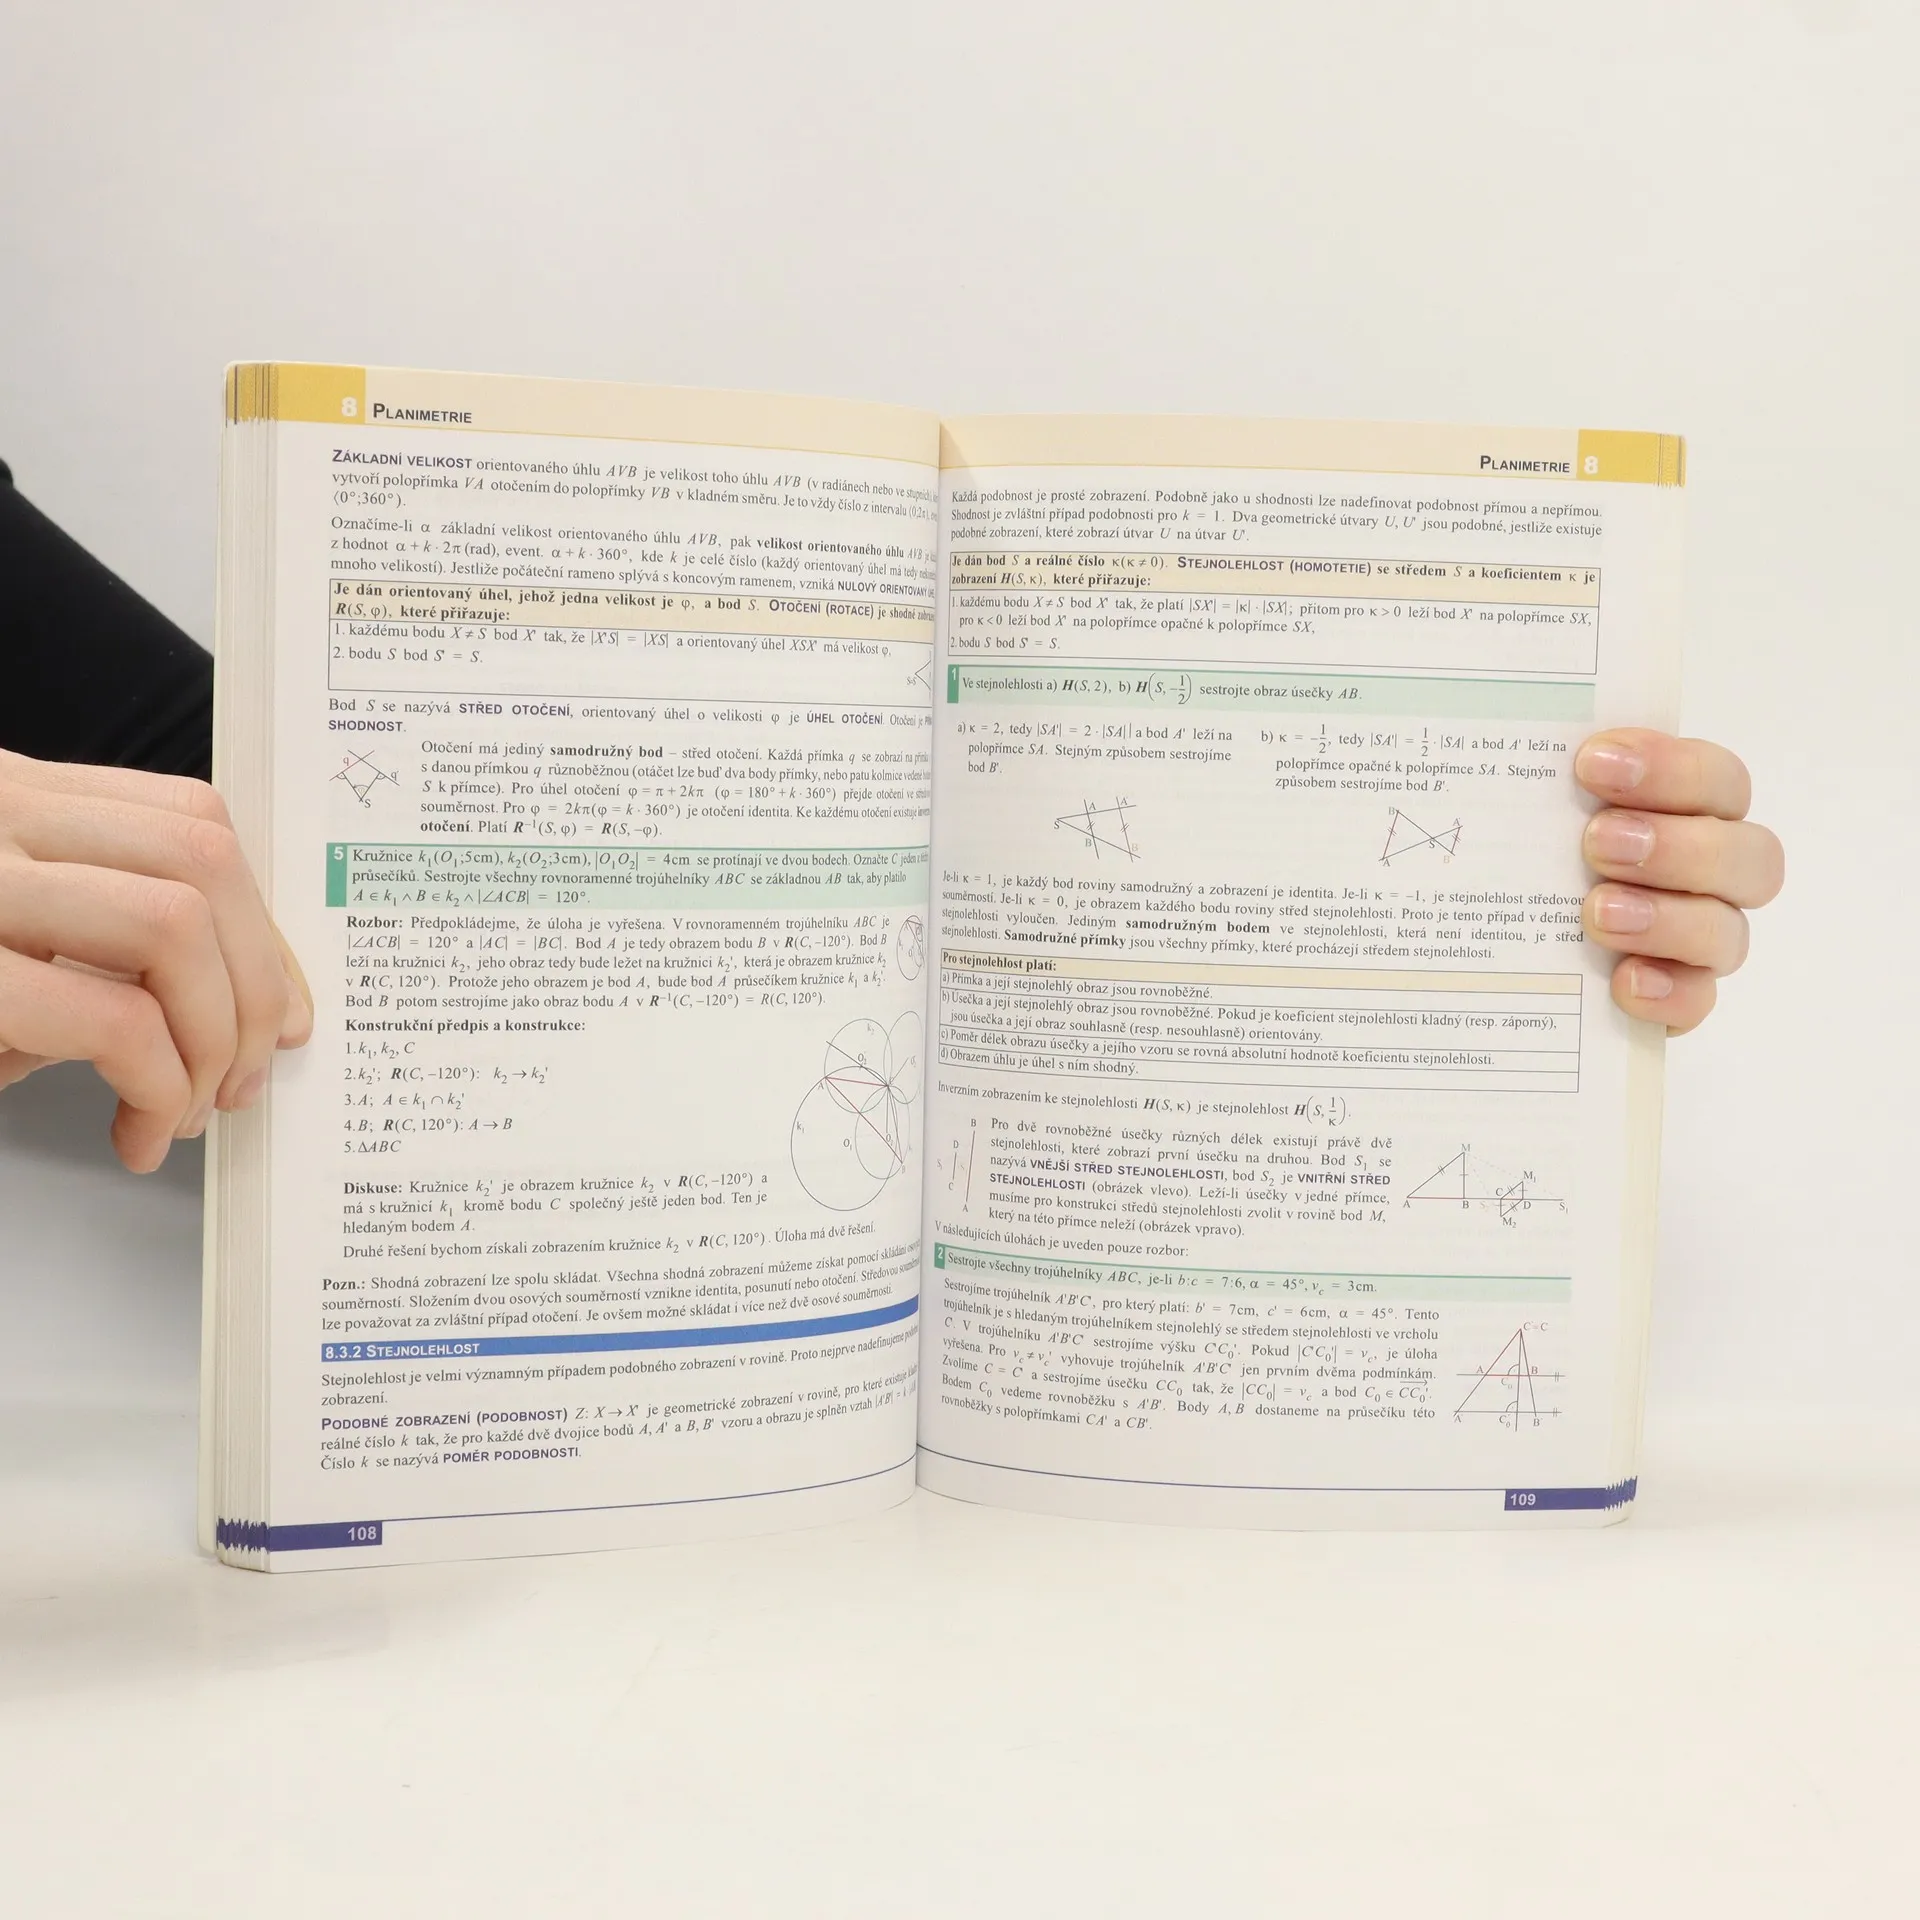 8 PLANIMETRIE
ZÁKLADNÍ VELIKOST orientovaného úhlu AVB je velikost toho úhlu AVB (v radiánech nebo ve
vytvoří polopřímka VA otočením do polopřímky VB v kladném směru. Je to vždy číslo z intervalu
⟨0°;360°).
Označíme-li α základní velikost orientovaného úhlu AVB, pak velikost orientovaného úhlu AVB
z hodnot α + k · 2π (rad), event. α + k · 360°, kde k je celé číslo (každý orientovaný úhel má tedy
mnoho velikostí). Jestliže počáteční rameno splývá s koncovým ramenem, vzniká NULOVÝ ORIENTOVANÝ
Je dán orientovaný úhel, jehož jedna velikost je φ, a bod S. OTOČENÍ (ROTACE) je shodné
R(S, φ), které přiřazuje:
1. každému bodu X ≠ S bod X' tak, že |X'S| = |XS| a orientovaný úhel XSX' má velikost φ,
2. bodu S bod S' = S.
S=S'
Bod S se nazývá STŘED OTOČENÍ, orientovaný úhel o velikosti φ je ÚHEL OTOČENÍ. Otočení je
SHODNOST.
Otočení má jediný samodružný bod – střed otočení. Každá přímka q se zobrazí na
s danou přímkou q různoběžnou (otáčet lze buď dva body přímky, nebo patu kolmice vedené
S k přímce). Pro úhel otočení φ = π + 2kπ (φ = 180° + k · 360°) přejde otočení ve
souměrnost. Pro φ = 2kπ(φ = k · 360°) je otočení identita. Ke každému otočení existuje
otočení. Platí R⁻¹(S, φ) = R(S, −φ).
q q' S
5 Kružnice k₁(O₁;5cm), k₂(O₂;3cm), |O₁O₂| = 4cm se protínají ve dvou bodech. Označte C jeden z
průsečíků. Sestrojte všechny rovnoramenné trojúhelníky ABC se základnou AB tak, aby platilo
A ∈ k₁ ∧ B ∈ k₂ ∧ |∠ACB| = 120°.
Rozbor: Předpokládejme, že úloha je vyřešena. V rovnoramenném trojúhelníku ABC je
|∠ACB| = 120° a |AC| = |BC|. Bod A je tedy obrazem bodu B v R(C, −120°). Bod B
leží na kružnici k₂, jeho obraz tedy bude ležet na kružnici k₂', která je obrazem kružnice k₂
v R(C, 120°). Protože jeho obrazem je bod A, bude bod A průsečíkem kružnice k₁ a k₂'.
Bod B potom sestrojíme jako obraz bodu A v R⁻¹(C, −120°) = R(C, 120°).
Konstrukční předpis a konstrukce:
1. k₁, k₂, C
2. k₂'; R(C, −120°): k₂ → k₂'
3. A; A ∈ k₁ ∩ k₂'
4. B; R(C, 120°): A → B
5. ΔABC
k₂ O₂ A k₁ O₁ B
Diskuse: Kružnice k₂' je obrazem kružnice k₂ v R(C, −120°) a
má s kružnicí k₁ kromě bodu C společný ještě jeden bod. Ten je
hledaným bodem A.
Druhé řešení bychom získali zobrazením kružnice k₂ v R(C, 120°). Úloha má dvě řešení.
Pozn.: Shodná zobrazení lze spolu skládat. Všechna shodná zobrazení můžeme získat pomocí skládání
souměrností. Složením dvou osových souměrností vznikne identita, posunutí nebo otočení. Středovou
lze považovat za zvláštní případ otočení. Je ovšem možné skládat i více než dvě osové souměrnosti.
8.3.2 STEJNOLEHLOST
Stejnolehlost je velmi významným případem podobného zobrazení v rovině. Proto nejprve nadefinujeme
zobrazení.
PODOBNÉ ZOBRAZENÍ (PODOBNOST) Z: X → X' je geometrické zobrazení v rovině, pro které existuje
reálné číslo k tak, že pro každé dvě dvojice bodů A, A' a B, B' vzoru a obrazu je splněn vztah |A'B'| = k
Číslo k se nazývá POMĚR PODOBNOSTI.
108
PLANIMETRIE 8
Každá podobnost je prosté zobrazení. Podobně jako u shodnosti lze nadefinovat podobnost přímou a nepřímou.
Shodnost je zvláštní případ podobnosti pro k = 1. Dva geometrické útvary U, U' jsou podobné, jestliže existuje
podobné zobrazení, které zobrazí útvar U na útvar U'.
Je dán bod S a reálné číslo κ(κ ≠ 0). STEJNOLEHLOST (HOMOTETIE) se středem S a koeficientem κ je
zobrazení H(S, κ), které přiřazuje:
1. každému bodu X ≠ S bod X' tak, že platí |SX'| = |κ| · |SX|; přitom pro κ > 0 leží bod X' na polopřímce SX,
pro κ < 0 leží bod X' na polopřímce opačné k polopřímce SX,
2. bodu S bod S' = S.
1 Ve stejnolehlosti a) H(S, 2), b) H(S, −1/2) sestrojte obraz úsečky AB.
a) κ = 2, tedy |SA'| = 2 · |SA|| a bod A' leží na
polopřímce SA. Stejným způsobem sestrojíme
bod B'.
b) κ = −1/2, tedy |SA'| = 1/2 · |SA| a bod A' leží na
polopřímce opačné k polopřímce SA. Stejným
způsobem sestrojíme bod B'.
S A A' B B'
B A' S A B'
Je-li κ = 1, je každý bod roviny samodružný a zobrazení je identita. Je-li κ = −1, je stejnolehlost středovou
souměrností. Je-li κ = 0, je obrazem každého bodu roviny střed stejnolehlosti. Proto je tento případ v definic
stejnolehlosti vyloučen. Jediným samodružným bodem ve stejnolehlosti, která není identitou, je střed
stejnolehlosti. Samodružné přímky jsou všechny přímky, které procházejí středem stejnolehlosti.
Pro stejnolehlost platí:
a) Přímka a její stejnolehlý obraz jsou rovnoběžné.
b) Úsečka a její stejnolehlý obraz jsou rovnoběžné. Pokud je koeficient stejnolehlosti kladný (resp. záporný),
jsou úsečka a její obraz souhlasně (resp. nesouhlasně) orientovány.
c) Poměr délek obrazu úsečky a jejího vzoru se rovná absolutní hodnotě koeficientu stejnolehlosti.
d) Obrazem úhlu je úhel s ním shodný.
Inverzním zobrazením ke stejnolehlosti H(S, κ) je stejnolehlost H(S, 1/κ).
B D S₁ C A
Pro dvě rovnoběžné úsečky různých délek existují právě dvě
stejnolehlosti, které zobrazí první úsečku na druhou. Bod S₁ se
nazývá VNĚJŠÍ STŘED STEJNOLEHLOSTI, bod S₂ je VNITŘNÍ STŘED
STEJNOLEHLOSTI (obrázek vlevo). Leží-li úsečky v jedné přímce,
musíme pro konstrukci středů stejnolehlosti zvolit v rovině bod M,
který na této přímce neleží (obrázek vpravo).
M M₁ A B C D S₁ M₂
V následujících úlohách je uveden pouze rozbor:
2 Sestrojte všechny trojúhelníky ABC, je-li b:c = 7:6, α = 45°, v꜀ = 3cm.
Sestrojíme trojúhelník A'B'C', pro který platí: b' = 7cm, c' = 6cm, α = 45°. Tento
trojúhelník je s hledaným trojúhelníkem stejnolehlý se středem stejnolehlosti ve vrcholu
C'. V trojúhelníku A'B'C' sestrojíme výšku C'C₀'. Pokud |C'C₀'| = v꜀, je úloha
vyřešena. Pro v꜀ ≠ v꜀' vyhovuje trojúhelník A'B'C' jen prvním dvěma podmínkám.
Zvolíme C = C' a sestrojíme úsečku CC₀ tak, že |CC₀| = v꜀ a bod C₀ ∈ CC₀'.
Bodem C₀ vedeme rovnoběžku s A'B'. Body A, B dostaneme na průsečíku této
rovnoběžky s polopřímkami CA' a CB'.
C=C' A B C₀ A' C₀' B'
109